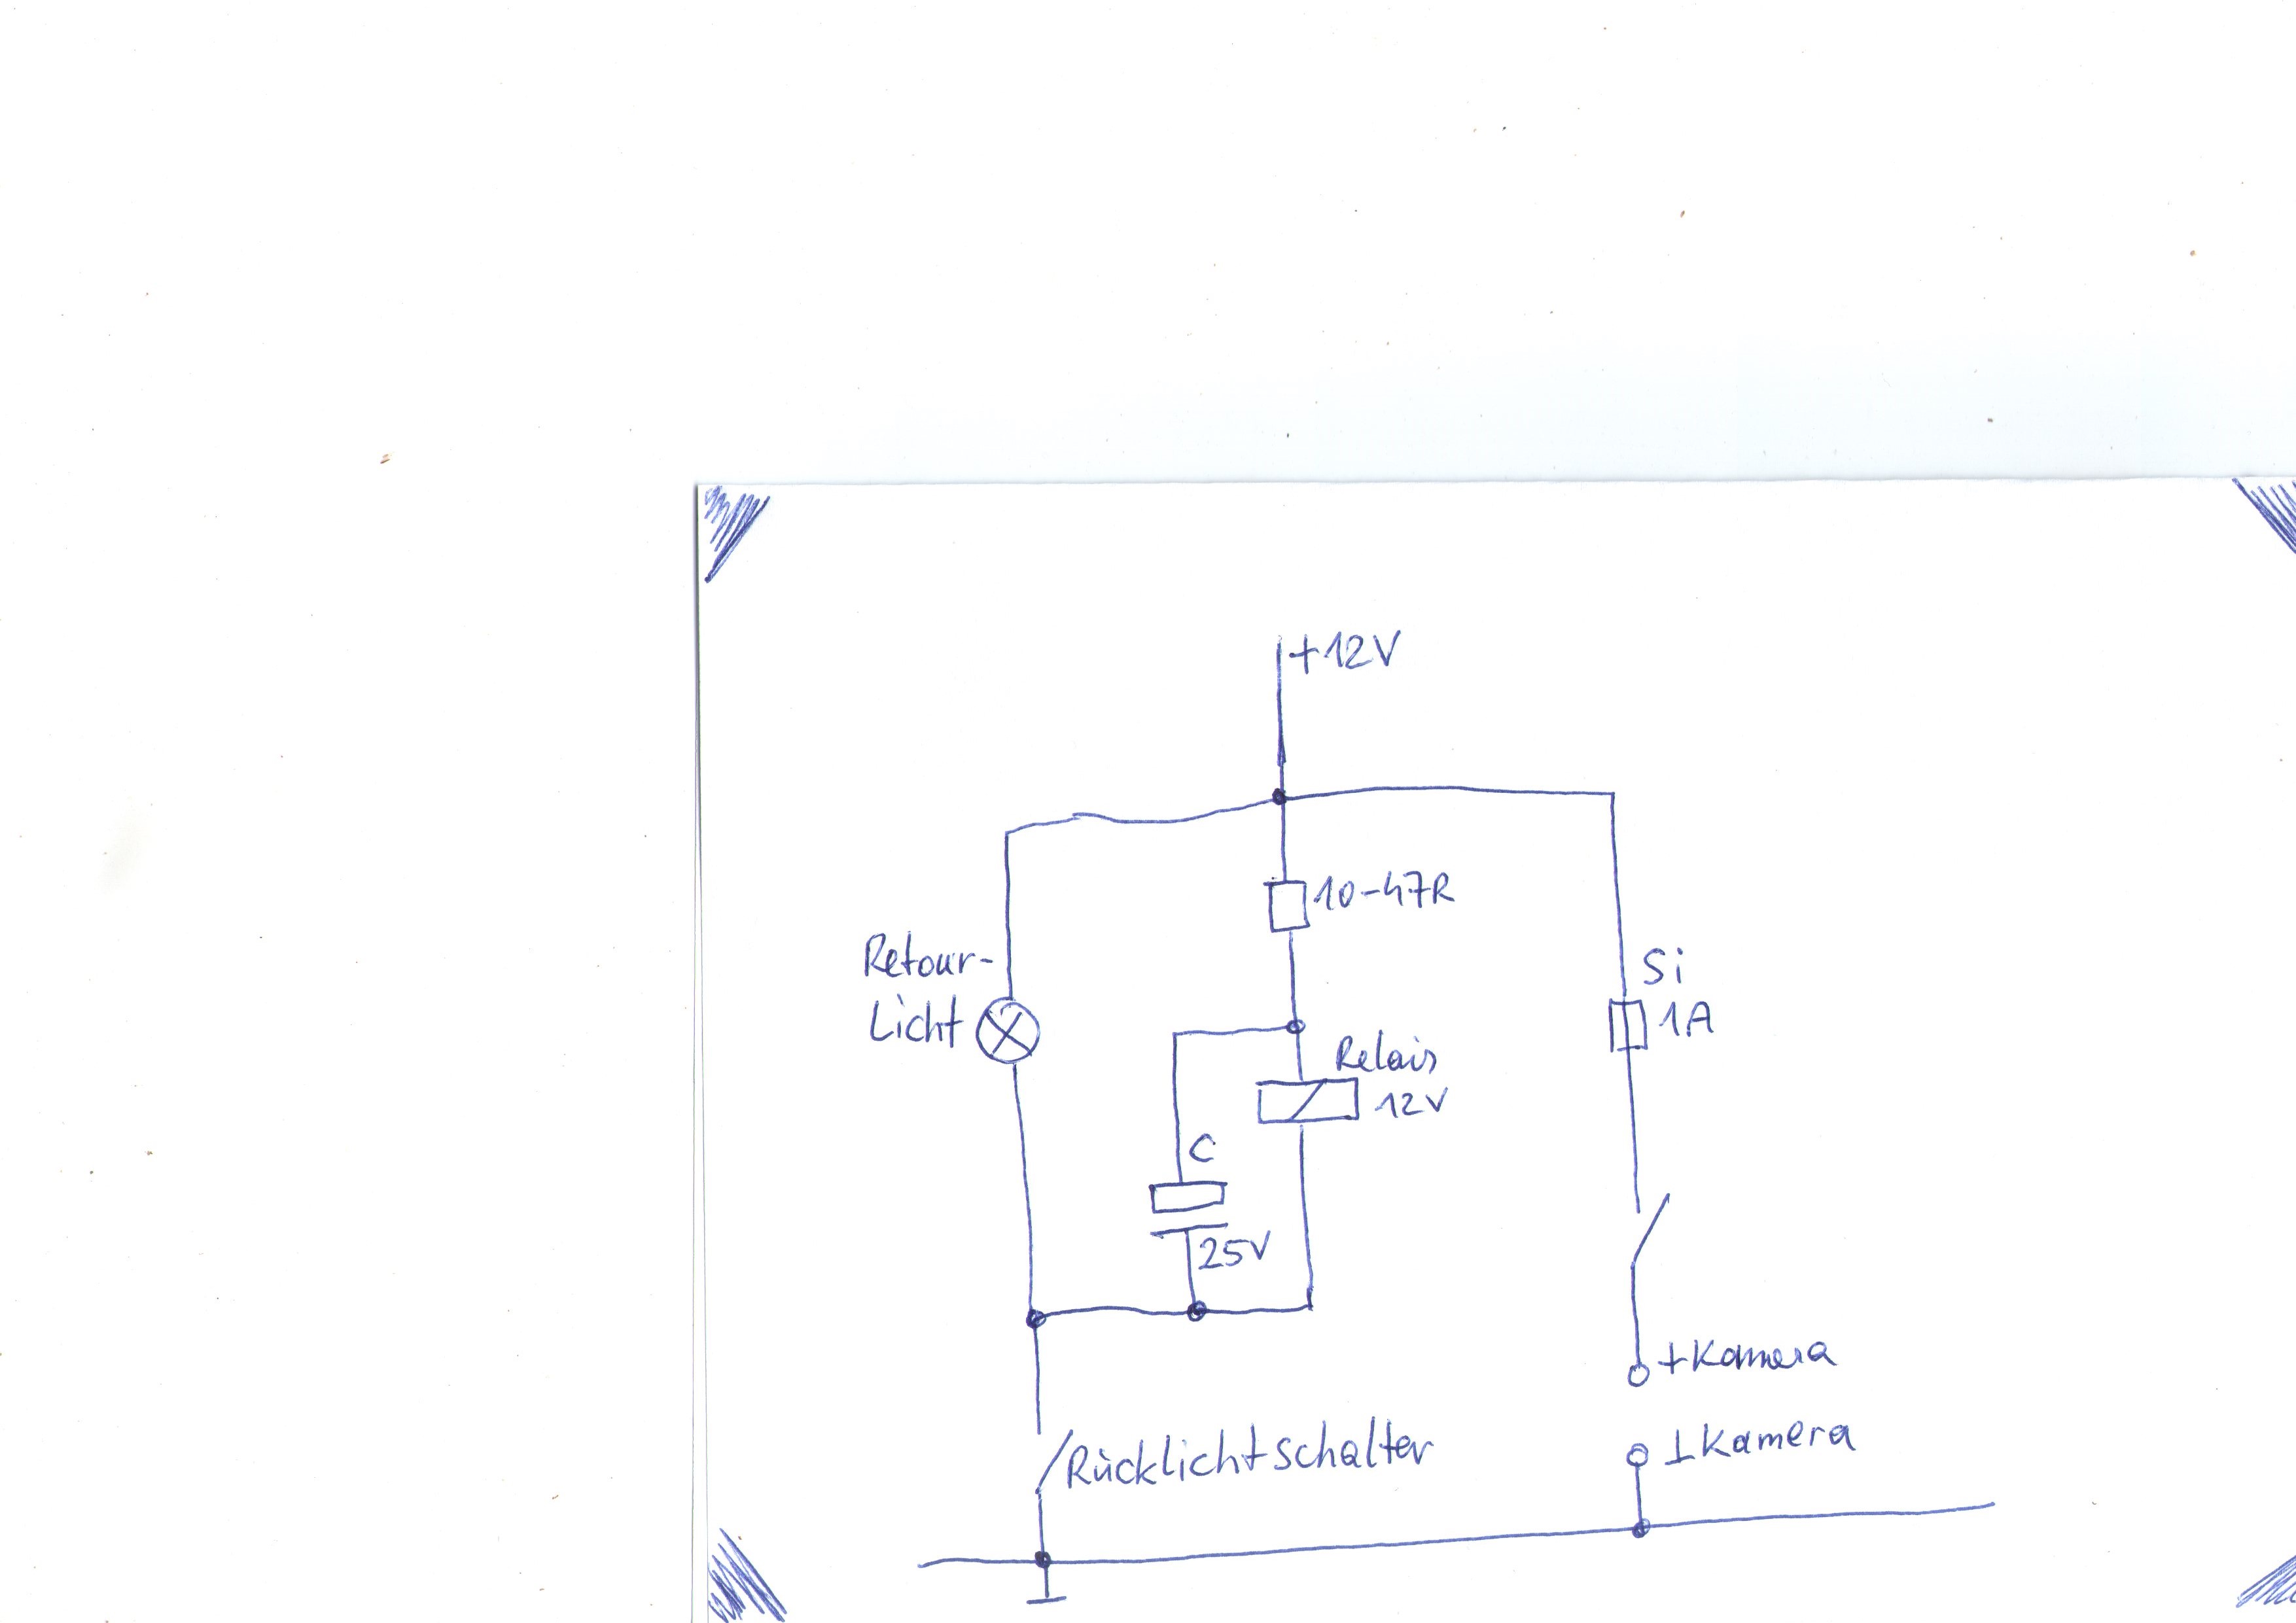 +12V
10-47R
Retour-
Licht
Si
1A
Relais
12V
C
25V
+Kamera
⊥Kamera
Rücklichtschalter